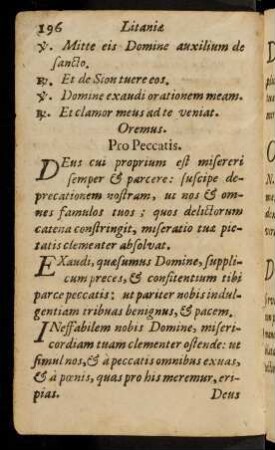 196 Litaniæ
℣. Mitte eis Domine auxilium de
sancto.
℟. Et de Sion tuere eos.
℣. Domine exaudi orationem meam.
℟. Et clamor meus ad te veniat.
Oremus.
Pro Peccatis.
DEus cui proprium est misereri
semper & parcere: suscipe de-
precationem vostram, ut nos & om-
nes famulos tuos; quos delictorum
catena constringit, miseratio tuæ pie-
tatis clementer absolvat.
EXaudi, quæsumus Domine, suppli-
cum preces, & confitentium tibi
parce peccatis: ut pariter nobis indul-
gentiam tribuas benignus, & pacem.
INeffabilem nobis Domine, miseri-
cordiam tuam clementer ostende: ut
simul nos, & à peccatis omnibus exuas,
& à pœnis, quas pro his meremur, eri-
pias. Deus